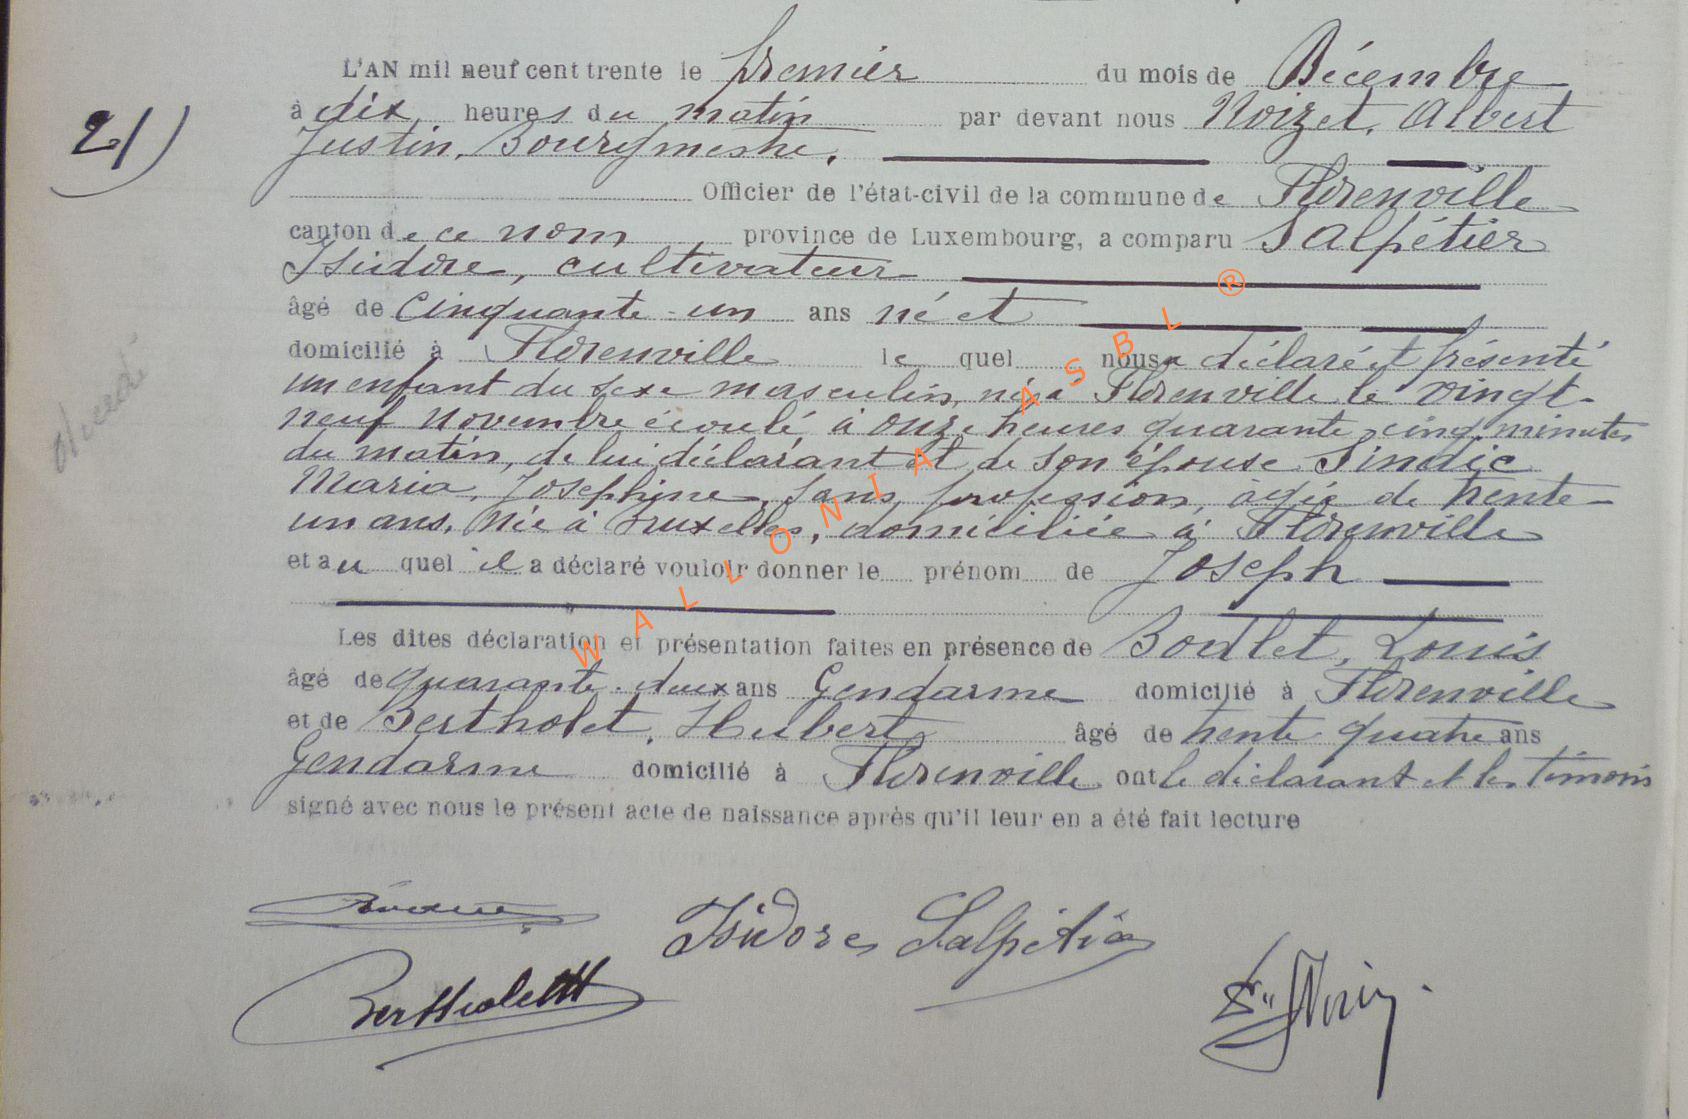 L'AN mil neuf cent trente le premier du mois de Décembre
21) à dix heures du matin par devant nous Noizet, Albert
Justin, Bourgmestre,
Officier de l'état-civil de la commune de Florenville
canton de ce nom province de Luxembourg, a comparu Salpétier
Isidore, cultivateur
âgé de cinquante-un ans né et
domicilié à Florenville le quel nous a déclaré et présenté
un enfant du sexe masculin, né à Florenville le vingt-
neuf novembre écoulé à onze heures quarante cinq minutes
du matin, de lui déclarant et de son épouse Sindic
Maria, Joséphine, sans profession, âgée de trente-
un ans, née à Ruxelles, domiciliée à Florenville
et au quel il a déclaré vouloir donner le prénom de Joseph
Les dites déclaration et présentation faites en présence de Boulet, Louis
âgé de quarante-deux ans Gendarme domicilié à Florenville
et de Bertholet, Hubert âgé de trente quatre ans
Gendarme domicilié à Florenville ont le déclarant et les témoins
signé avec nous le présent acte de naissance après qu'il leur en a été fait lecture
Isidore Salpétier
Bertholet H
WALLONIA ASBL ®